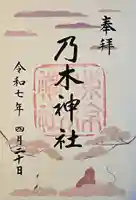 奉拝
乃木神社
令和七年 四月二十日